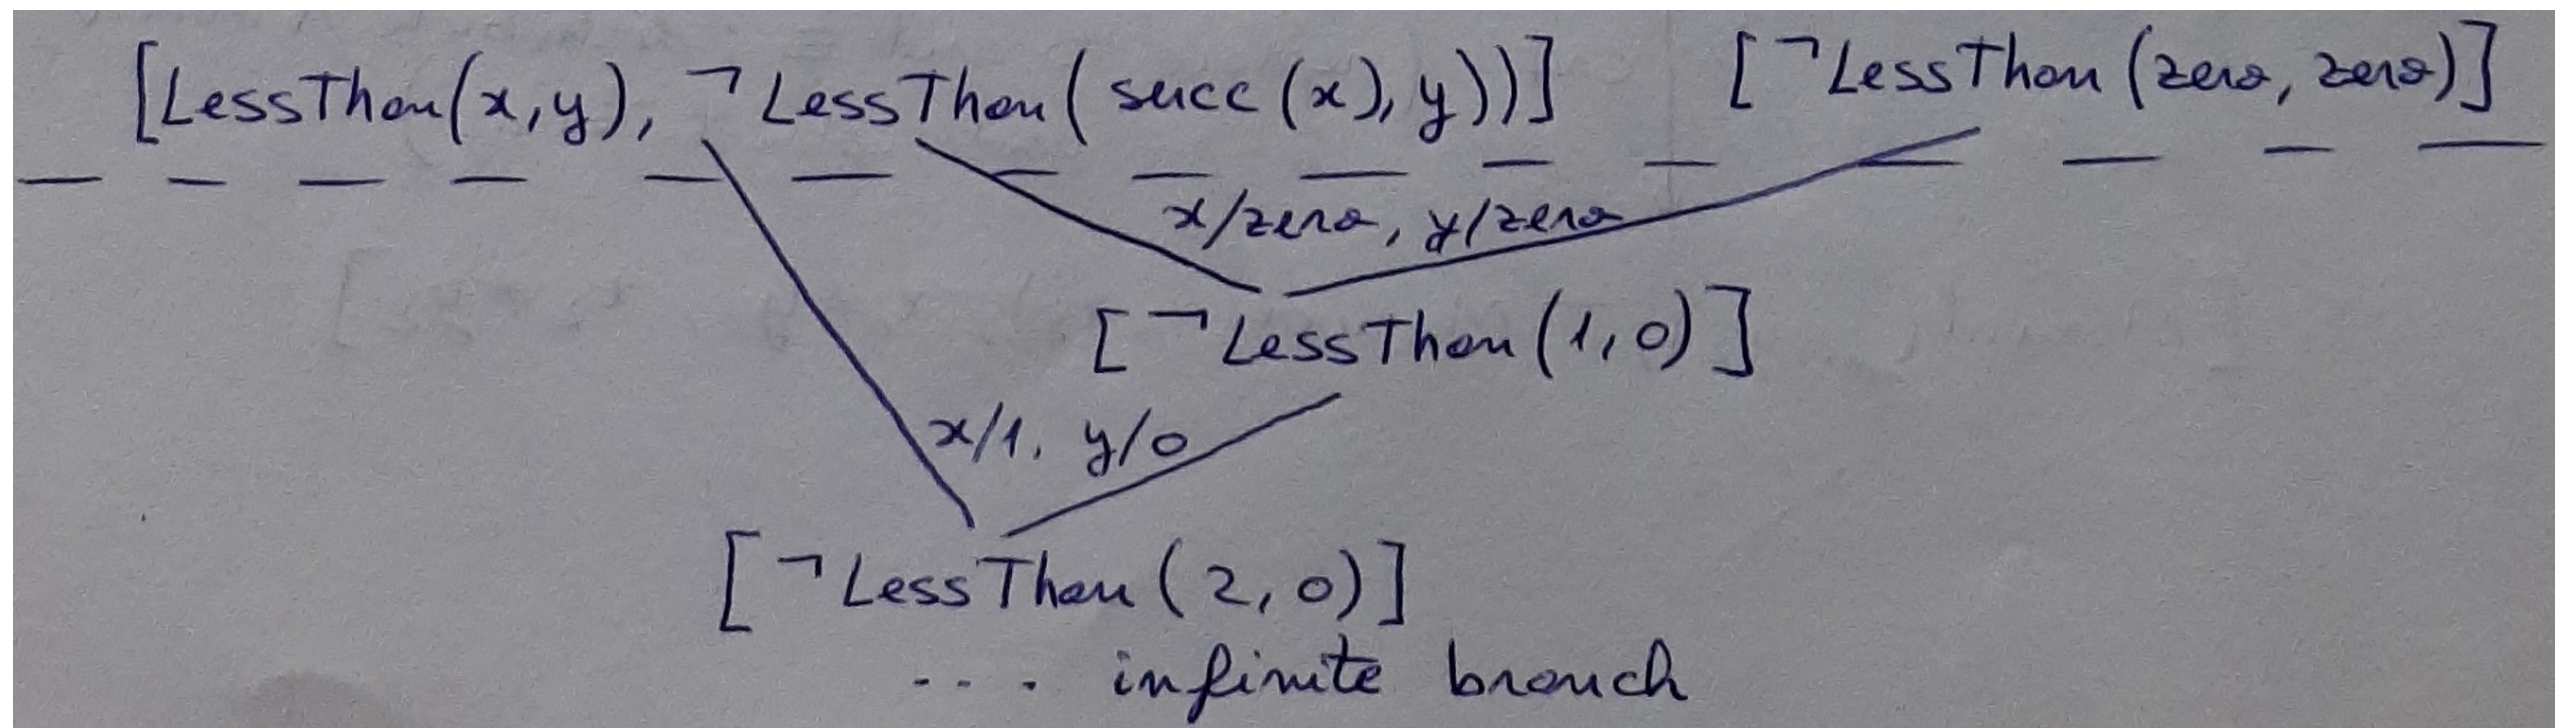 [LessThan(x,y), ¬LessThan(succ(x),y))] [¬LessThan(zero, zero)]
x/zero, y/zero
[¬LessThan(1,0)]
x/1, y/0
[¬LessThan(2,0)]
... infinite branch